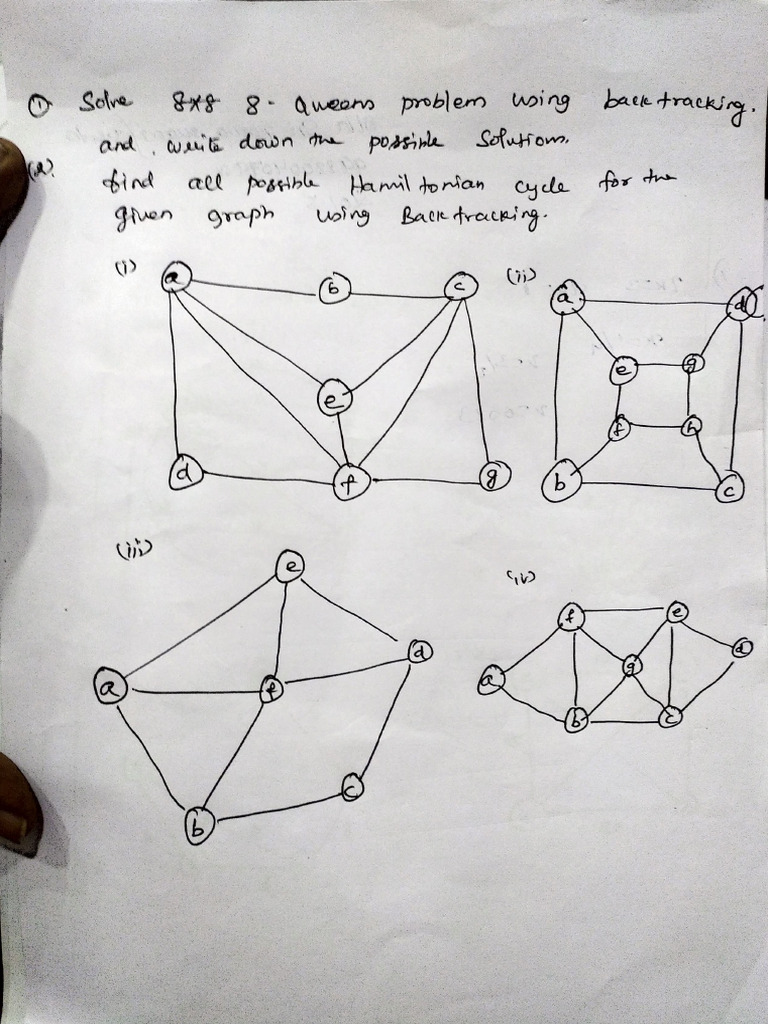 ① Solve 8*8 8- Queens problem using backtracking.
and write down the possible solutions.
(2). find all possible Hamiltonian cycle for the
given graph using Backtracking.
(i) (ii)
a b c a d
e e g
f h
d f g b c
(iii) (iv)
e
f e
a f d a g d
b c
c
b